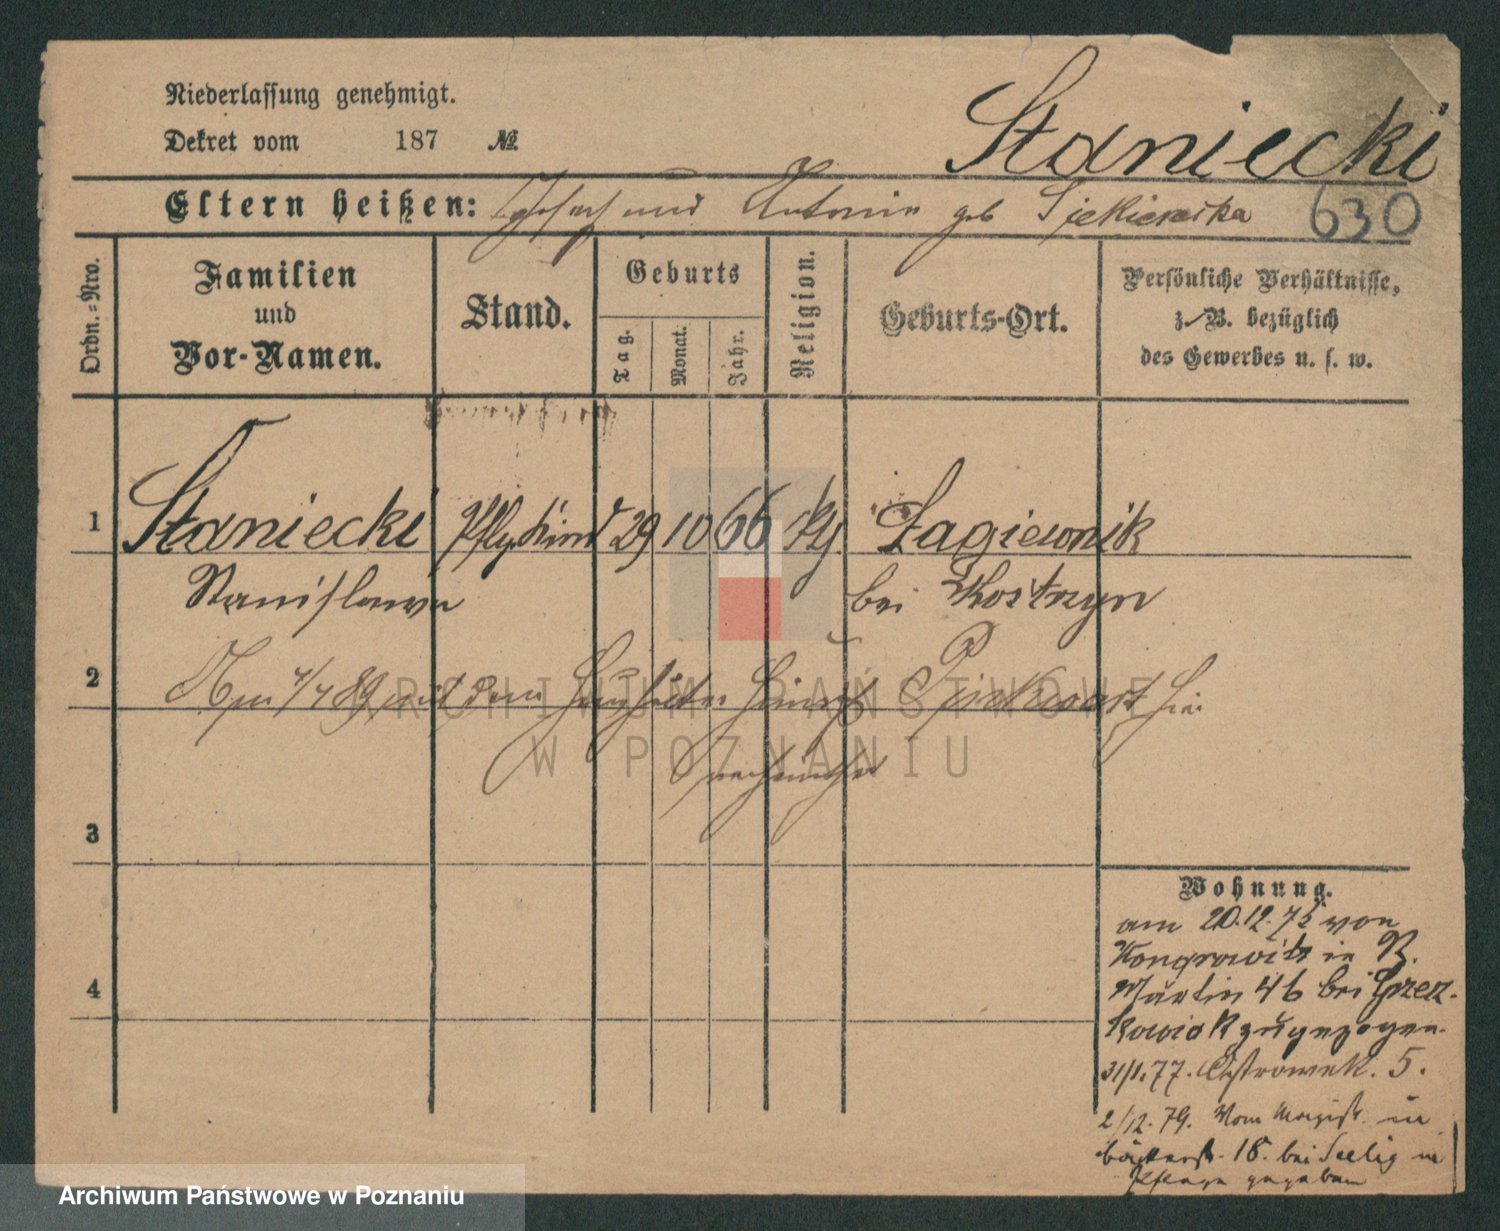 Niederlassung genehmigt.
Dekret vom 187 №
Staniecki
Eltern heißen: Joseph und Antonie geb Siekierska
630
Ordn.-Nro.
Familien
und
Vor-Namen.
Stand.
Geburts
Tag.
Monat.
Jahr.
Religion.
Geburts-Ort.
Persönliche Verhältnisse,
z. B. bezüglich
des Gewerbes u. s. w.
1 Staniecki Pflg. Kind 29 10 66 Łagiewnik
Stanislawa bei Kostrzyn
2 Am 4/7 89 mit dem hier
3
4
Wohnung.
am 20.12.75 von
Wongrowitz in
Martin 46 bei
zugezogen
31/1.77. Ostrowek. 5.
2/12.79. Vom Magistr. in
Bäckerstr. 18. bei Seelig in
Pflege gegeben
ARCHIWUM PAŃSTWOWE
W POZNANIU
Archiwum Państwowe w Poznaniu